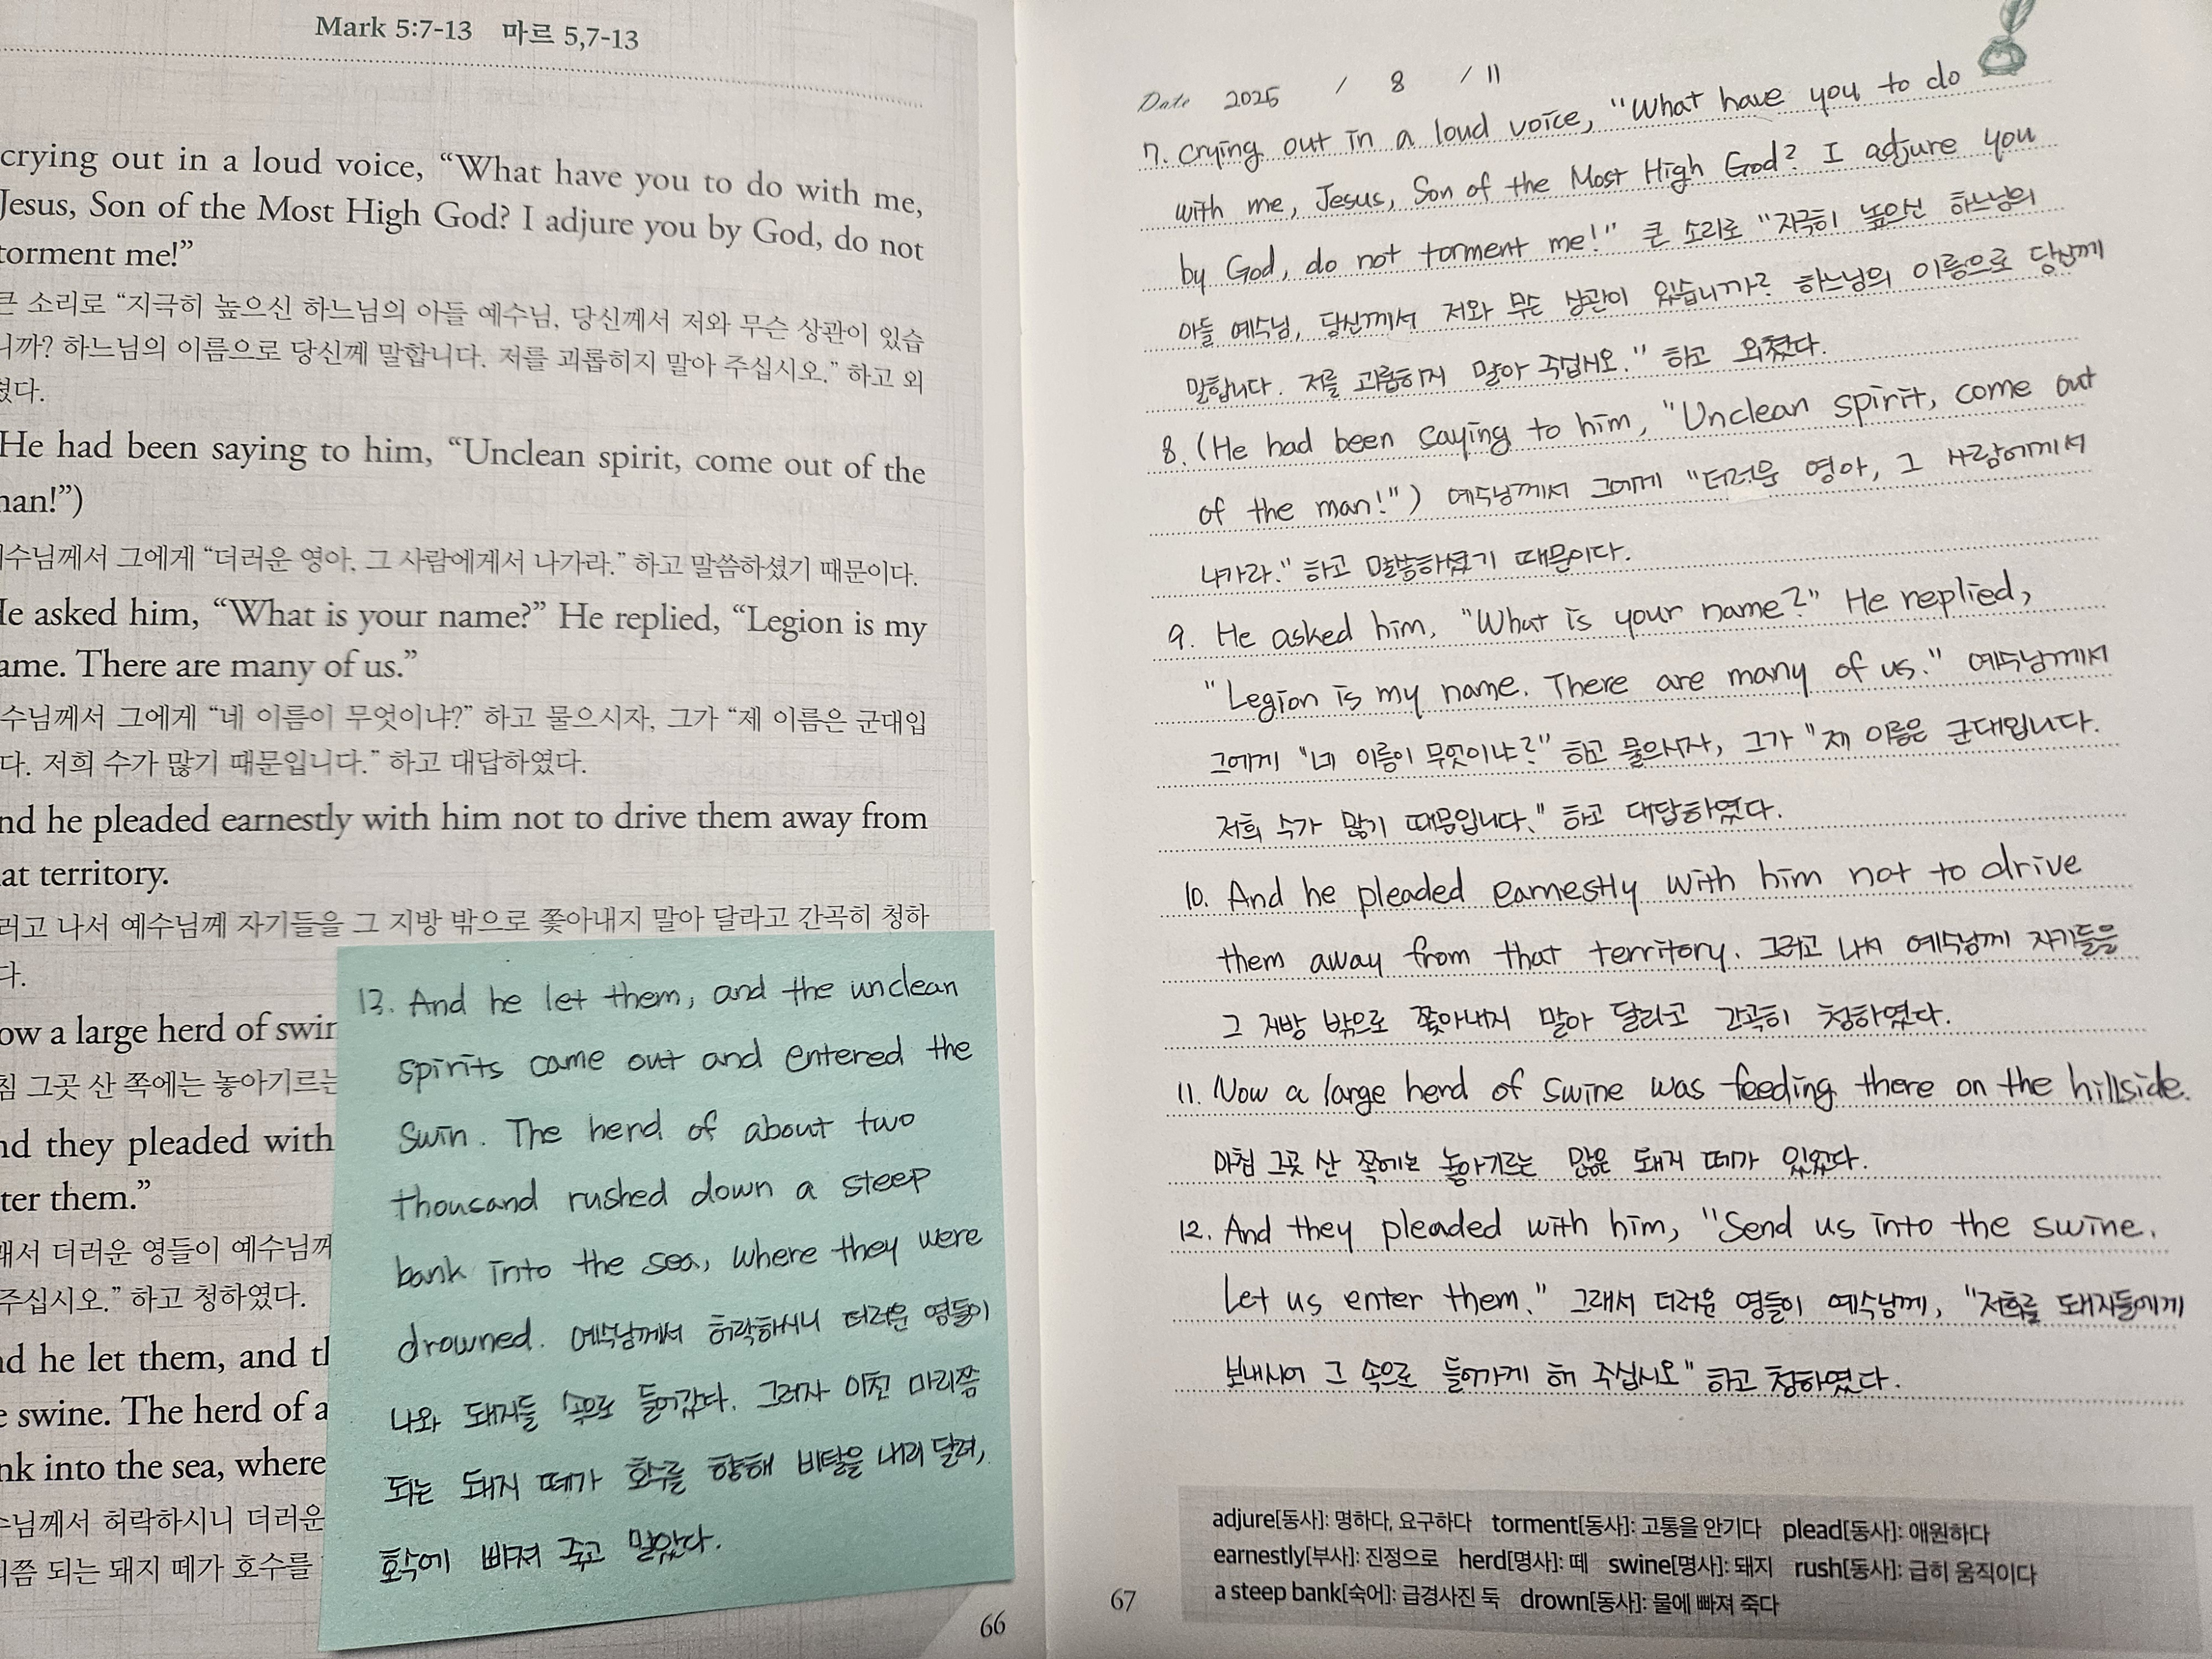 Mark 5:7-13 마르 5,7-13
crying out in a loud voice, “What have you to do with me,
Jesus, Son of the Most High God? I adjure you by God, do not
torment me!”
큰 소리로 “지극히 높으신 하느님의 아들 예수님, 당신께서 저와 무슨 상관이 있습
니까? 하느님의 이름으로 당신께 말합니다. 저를 괴롭히지 말아 주십시오.” 하고 외
쳤다.
He had been saying to him, “Unclean spirit, come out of the
man!”)
수님께서 그에게 “더러운 영아, 그 사람에게서 나가라.” 하고 말씀하셨기 때문이다.
He asked him, “What is your name?” He replied, “Legion is my
name. There are many of us.”
수님께서 그에게 “네 이름이 무엇이냐?” 하고 물으시자, 그가 “제 이름은 군대입
다. 저희 수가 많기 때문입니다.” 하고 대답하였다.
nd he pleaded earnestly with him not to drive them away from
at territory.
러고 나서 예수님께 자기들을 그 지방 밖으로 쫓아내지 말아 달라고 간곡히 청하
다.
ow a large herd of swin
침 그곳 산 쪽에는 놓아기르는
nd they pleaded with
ter them.”
래서 더러운 영들이 예수님께
주십시오.” 하고 청하였다.
nd he let them, and th
e swine. The herd of a
nk into the sea, where
수님께서 허락하시니 더러운
리쯤 되는 돼지 떼가 호수를
13. And he let them, and the unclean
spirits came out and entered the
swin. The herd of about two
thousand rushed down a steep
bank into the sea, where they were
drowned. 예수님께서 허락하시니 더러운 영들이
나와 돼지들 속으로 들어갔다. 그러자 이천 마리쯤
되는 돼지 떼가 호수를 향해 비탈을 내리 달려,
호수에 빠져 죽고 말았다.
66
Date 2025 / 8 / 11
7. crying out in a loud voice, "What have you to do
with me, Jesus, Son of the Most High God? I adjure you
by God, do not torment me!" 큰 소리로 "지극히 높으신 하느님의
아들 예수님, 당신께서 저와 무슨 상관이 있습니까? 하느님의 이름으로 당신께
말합니다. 저를 괴롭히지 말아 주십시오." 하고 외쳤다.
8. (He had been saying to him, "Unclean spirit, come out
of the man!") 예수님께서 그에게 "더러운 영아, 그 사람에게서
나가라." 하고 말씀하셨기 때문이다.
9. He asked him, "What is your name?" He replied,
"Legion is my name. There are many of us." 예수님께서
그에게 "네 이름이 무엇이냐?" 하고 물으시자, 그가 "제 이름은 군대입니다.
저희 수가 많기 때문입니다." 하고 대답하였다.
10. And he pleaded earnestly with him not to drive
them away from that territory. 그러고 나서 예수님께 자기들을
그 지방 밖으로 쫓아내지 말아 달라고 간곡히 청하였다.
11. Now a large herd of swine was feeding there on the hillside.
마침 그곳 산 쪽에는 놓아기르는 많은 돼지 떼가 있었다.
12. And they pleaded with him, "Send us into the swine.
Let us enter them." 그래서 더러운 영들이 예수님께, "저희를 돼지들에게
보내시어 그 속으로 들어가게 해 주십시오" 하고 청하였다.
adjure[동사]: 명하다, 요구하다 torment[동사]: 고통을 안기다 plead[동사]: 애원하다
earnestly[부사]: 진정으로 herd[명사]: 떼 swine[명사]: 돼지 rush[동사]: 급히 움직이다
a steep bank[숙어]: 급경사진 둑 drown[동사]: 물에 빠져 죽다
67